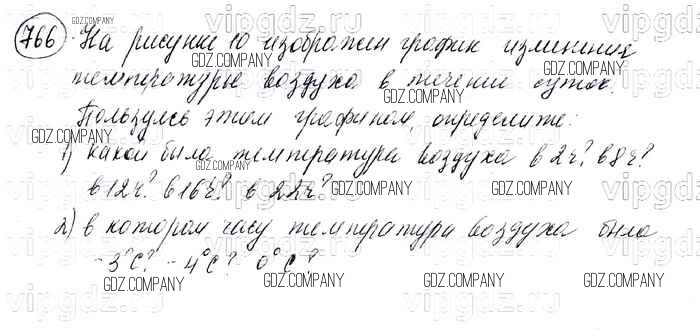 766 На рисунке 10 изображен график изменения
температуры воздуха в течении суток.
Пользуясь этим графиком, определите:
1) какой была температура воздуха в 2ч? в 8ч?
в 12ч? в 16ч? в 22ч?
2) в котором часу температура воздуха была
-3°С? -4°С? 0°С?
GDZ.COMPANY
vipgdz.ru